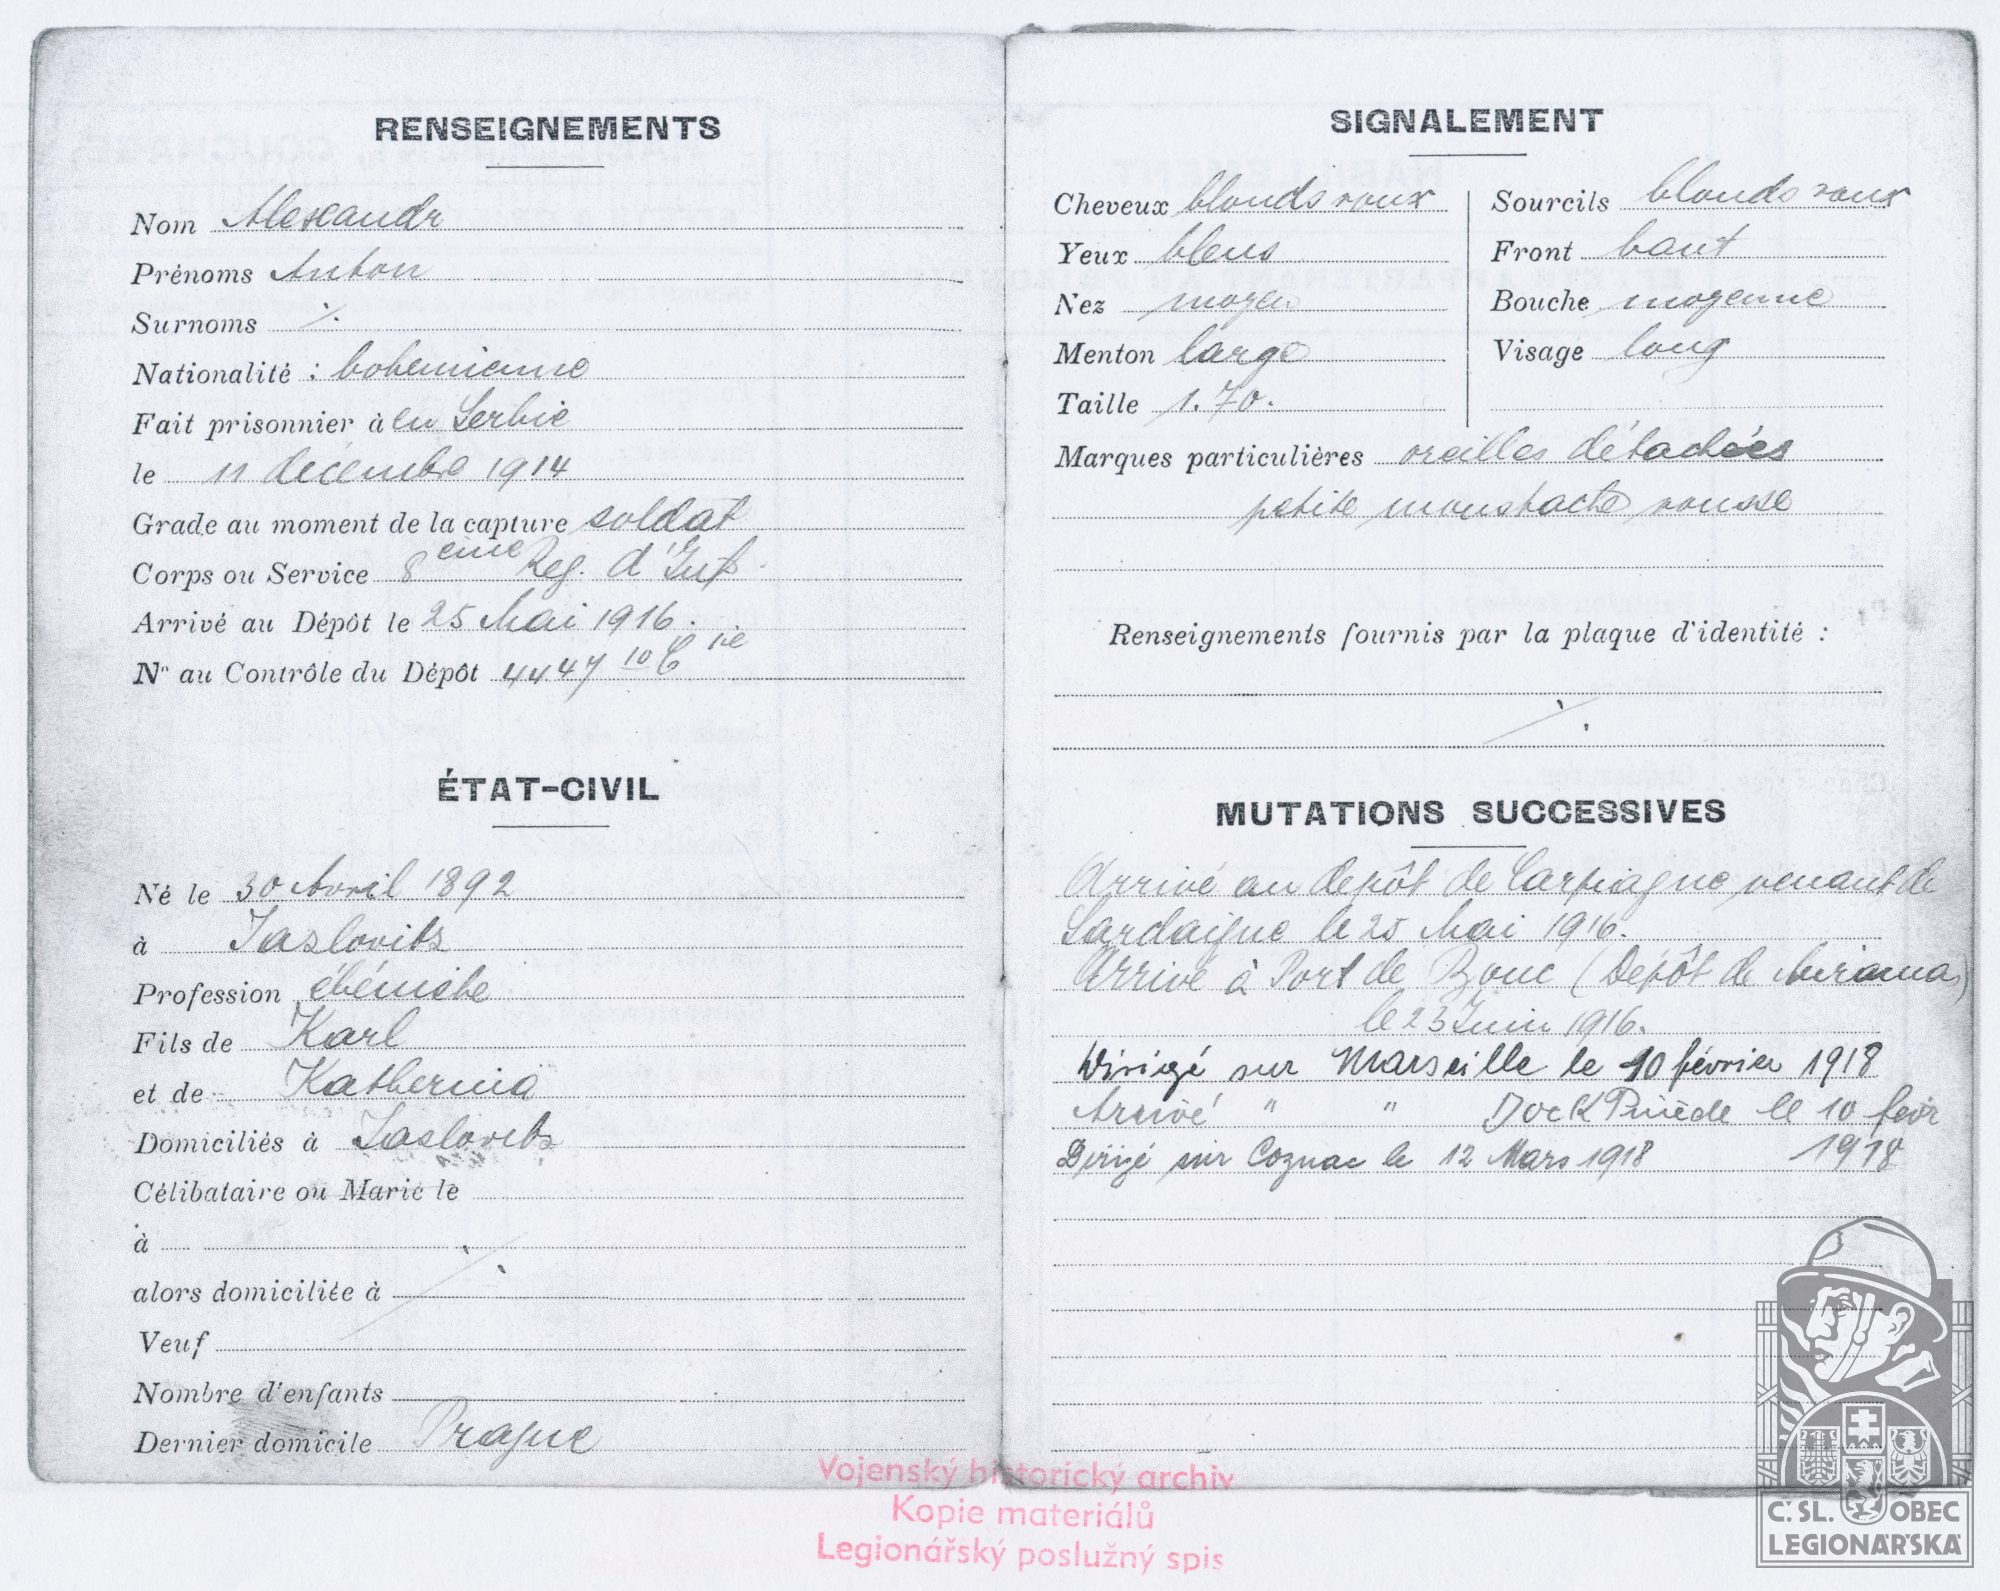 RENSEIGNEMENTS
Nom Alexandr
Prénoms Anton
Surnoms ./.
Nationalité : bohemienne
Fait prisonnier à en Serbie
le 11 décembre 1914
Grade au moment de la capture soldat
Corps ou Service 8eme Reg. d'Inf.
Arrivé au Dépôt le 25 Mai 1916.
N° au Contrôle du Dépôt 4447 10 Cie
ÉTAT-CIVIL
Né le 30 Avril 1892
à Jaslovits
Profession ébéniste
Fils de Karl
et de Katherina
Domiciliés à Jaslovits
Célibataire ou Marié le
à
alors domiciliée à
Veuf
Nombre d'enfants
Dernier domicile Prague
SIGNALEMENT
Cheveux blonds roux
Yeux bleus
Nez moyen
Menton large
Taille 1.70.
Sourcils blonds roux
Front haut
Bouche moyenne
Visage long
Marques particulières oreilles détachées
petite moustache rousse
Renseignements fournis par la plaque d'identité :
./.
MUTATIONS SUCCESSIVES
Arrivé au depôt de Carpiagne, venant de
Sardaigne le 25 Mai 1916.
Arrivé à Port de Bouc (Depôt de Miramas)
le 23 Juin 1916.
Dirigé sur Marseille le 10 février 1918
Arrivé " " Dock Pinède le 10 fevr
1918
Dirigé sur Cognac le 12 Mars 1918
Vojenský historický archiv
Kopie materiálů
Legionářský poslužný spis
Č.SL. OBEC
LEGIONÁŘSKÁ